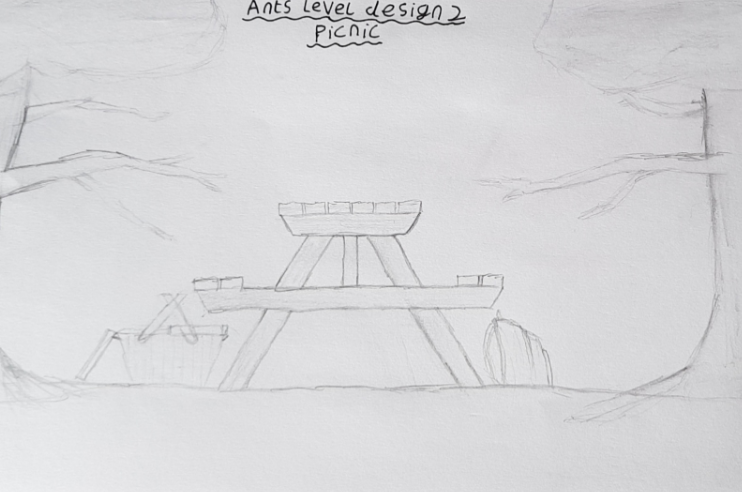 Ants Level design 2
Picnic